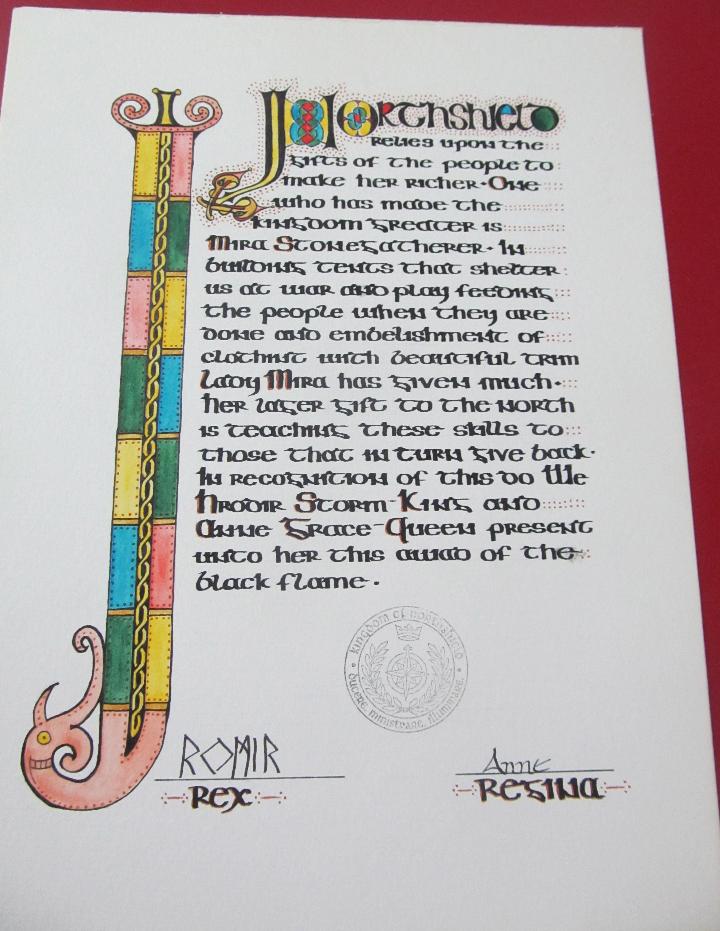 Northshield
relies upon the
gifts of the people to
make her richer. One
who has made the
kingdom greater is
Mira Stonegatherer. In
building tents that shelter
us at war and play feeding
the people when they are
done and embelishment of
clothing with beautiful trim
Lady Mira has given much.
Her larger gift to the North
is teaching these skills to
those that in turn give back.
In recognition of this do We
Hrodir Storm-King and
Anne Grace-Queen present
unto her this award of the
black flame.
kingdom of northshield
ducere, ministrare, illuminare
Anne
Rex
Regina